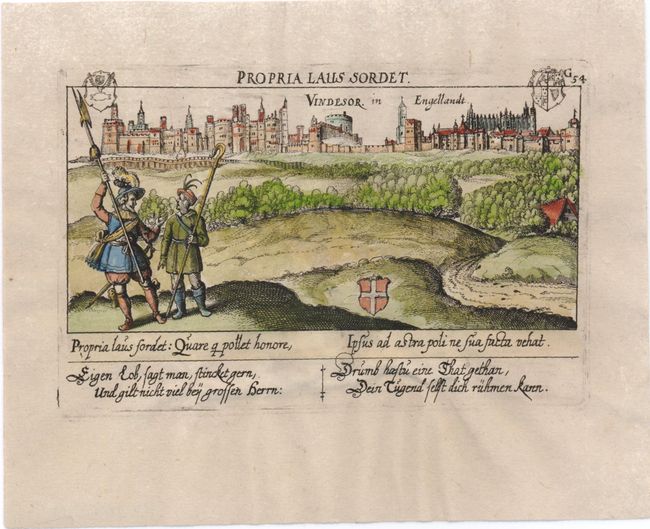 PROPRIA LAUS SORDET.
G 54
VINDESOR in Engellandt
Propria laus sordet: Quare q̨ pollet honore,
Ipsus ad astra poli ne sua facta vehat.
Eigen Lob, sagt man, stincket gern,
Und gilt nicht viel bey grossen Herrn:
Drumb hastu eine That gethan,
Dein Tugend selbst dich rühmen kann.